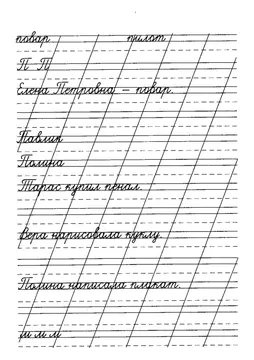 повар пилот
П П
Елена Петровна – повар.
Павлик
Полина
Тарас купил пенал.
Вера нарисовала куклу.
Полина написала плакат.
м м м